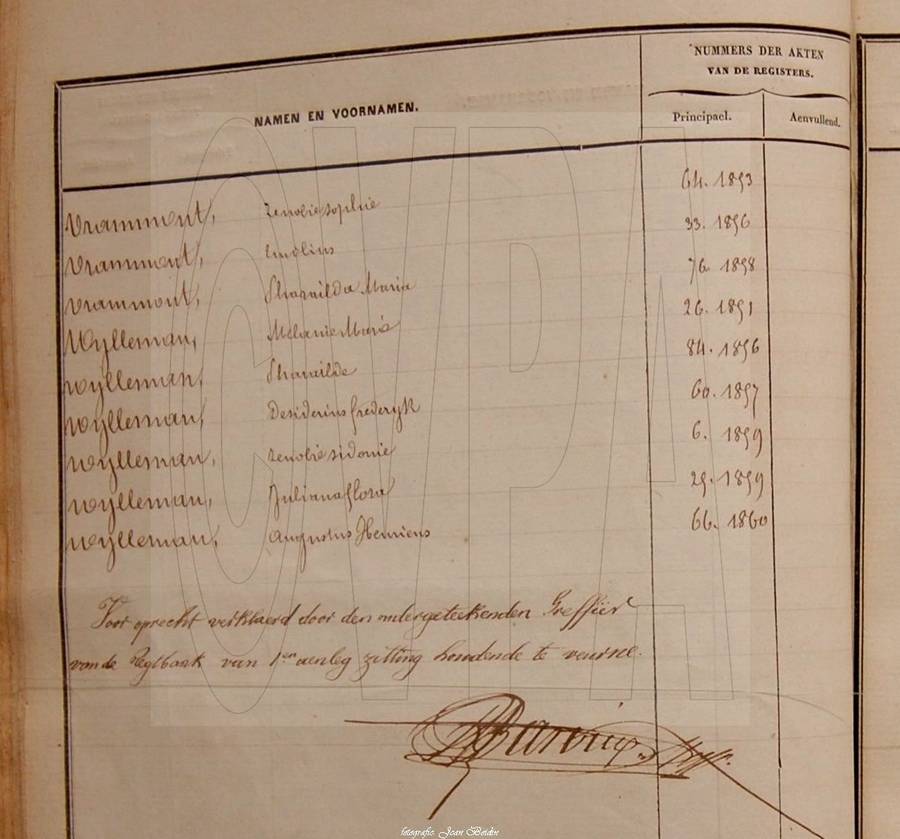 NUMMERS DER AKTEN
VAN DE REGISTERS.
NAMEN EN VOORNAMEN.
Principael. Aenvullend.
Vrammont, Zenobie sophie 64. 1853
Vrammont, Emelius 33. 1856
Vrammont, Pharaïlda Maria 76. 1858
Wylleman, Mélanie Marie 26. 1851
wylleman, Pharaïlde 84. 1856
wylleman, Desiderius frederyk 60. 1857
wylleman, zenobie sidonie 6. 1859
wylleman, Juliana flora 25. 1859
wylleman, Augustus Henricus 66. 1860
Voor oprecht verklaerd door den ondergeteekenden Greffier
van de Regtbank van 1en aenleg zitting houdende te veurne.
CVPA
fotografie: Joan Beidin